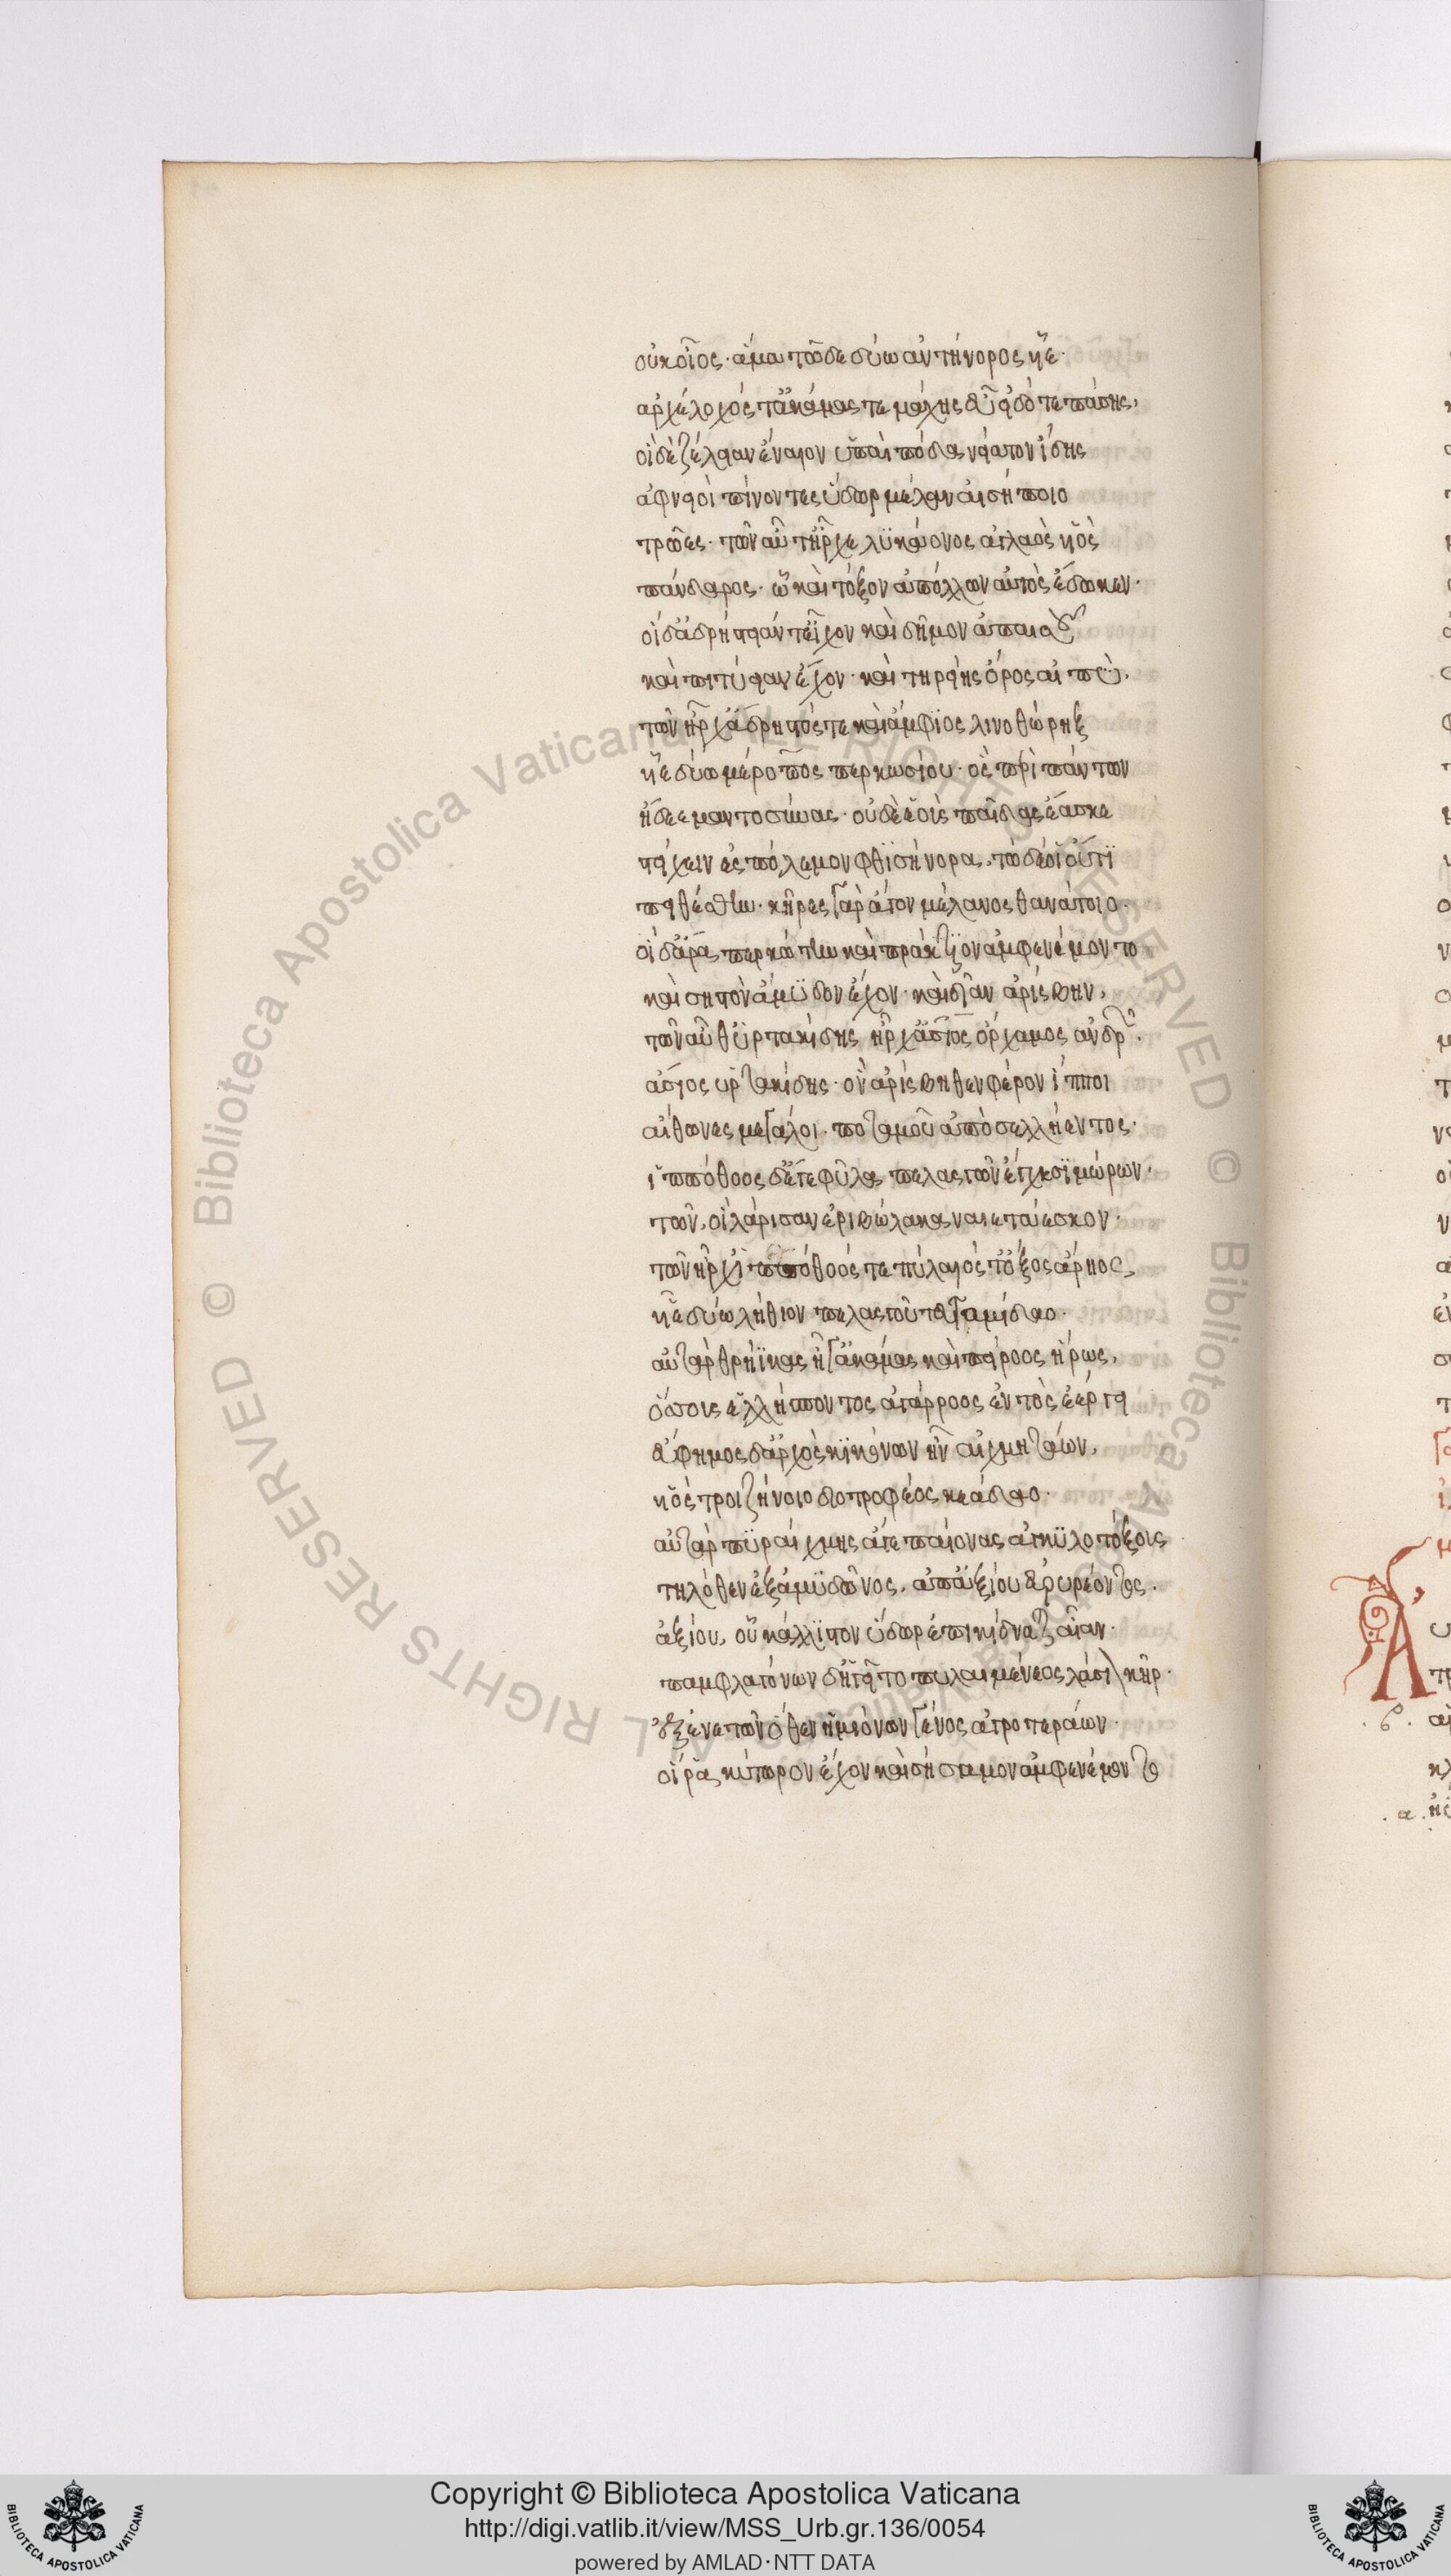 οὐκ οἶος· ἅμα τῶδε δύω ἀντήνορος υἷε·
ἀρχέλοχός τ' ἀκάμας τε μάχης εὖ εἰδότε πάσης,
οἱ δὲ ζέλειαν ἔναιον ὑπαὶ πόδα νείατον ἴδης
ἀφνειοὶ πίνοντες ὕδωρ μέλαν αἰσήποιο
τρῶες· τῶν αὖτ' ἦρχε λϋκάονος ἀγλαὸς υἱὸς
πάνδαρος· ὧ καὶ τόξον ἀπόλλων αὐτὸς ἔδωκεν·
οἱ δ' ἀδρήστειάν τ' εἶχον καὶ δῆμον ἀπαισοῦ
καὶ πιτύειαν ἔχον· καὶ τηρείης ὄρος αἰπὺ.
τῶν ἦρχ' ἄδρηστός τε καὶ ἄμφϊος λινοθώρηξ
υἷε δύω μέροπος περκωσίου· ὃς περὶ πάντων
ἤδεε μαντοσύνας· οὐδὲ ἑοὺς παῖδας ἔασκε
στείχειν ἐς πόλεμον φθϊσήνορα, τὼ δέ οἱ οὔτϊ
πειθέσθην· κῆρες γὰρ ἄγον μέλανος θανάτοιο·
οἱ δ' ἄρα περκώτην καὶ πράκτϊον ἀμφενέμοντο
καὶ σηστὸν ἄμϋδον ἔχον· καὶ δῖαν ἀρίσβην,
τῶν αὖθ' ϋρτακίδης ἦρχ' ἄσϊος ὄρχαμος ἀνδρῶν.
ἄσϊος ὑρτακίδης· ὃν ἀρίσβηθεν φέρον ἵπποι
αἴθωνες μεγάλοι· ποταμοῦ ἀπὸ σελλήεντος·
ἱππόθοος δ' ἄγε φῦλα πελασγῶν ἐγχεσϊμώρων·
τῶν, οἳ λάρισαν ἐριβώλακα ναιετάεσκον·
τῶν ἦρχ' ἱππόθοός τε πύλαιός τ' ὄξος ἄρηος,
υἷε δύω λήθοιο πελασγοῦ τευταμίδαο·
αὐτὰρ θρήϊκας ἦγ' ἀκάμας καὶ πείροος ἥρως,
ὅσσους ἑλλήσποντος ἀγάρροος ἐντὸς ἐέργει
εὔφημος δ' ἀρχὸς κϊκόνων ἦν αἰχμητάων,
υἱὸς τροιζήνοιο διοτρεφέος κεάδαο·
αὐτὰρ πϋραίχμης ἄγε παίονας ἀγκϋλοτόξους
τηλόθεν ἐξ ἀμϋδῶνος, ἀπ' ἀξίου εὐρυρέοντος.
ἀξίου, οὗ κάλλϊστον ὕδωρ ἐπικίδναται αἶαν·
παφλαγόνων δ' ἡγεῖτο πυλαιμένεος λάσιον κῆρ·
ἐξ ἐνετῶν ὅθεν ἡμιόνων γένος ἀγροτεράων·
οἵ ρα κύτωρον ἔχον καὶ σήσαμον ἀμφενέμοντο
Copyright © Biblioteca Apostolica Vaticana
http://digi.vatlib.it/view/MSS_Urb.gr.136/0054
powered by AMLAD·NTT DATA